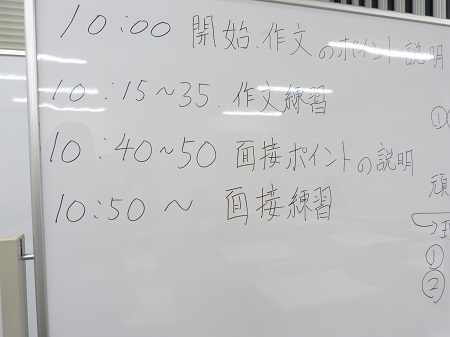 10:00 開始.作文のポイント説明
10:15~35.作文練習
10:40~50 面接ポイントの説明
10:50~ 面接練習
①
頑
→
①
②